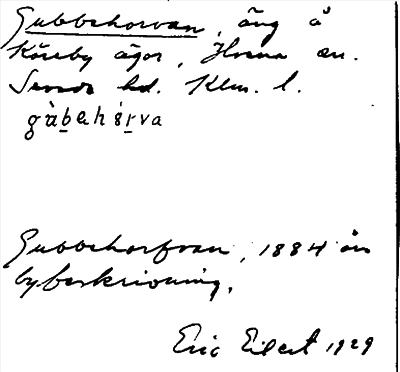 Gubbehorvan, äng å
Köreby ägor, Hossmo sn.
hd. Klm. l.
gùbehórva
Gubbehorfvan, 1884 års
bybeskrivning.
Eric Eilert 1929